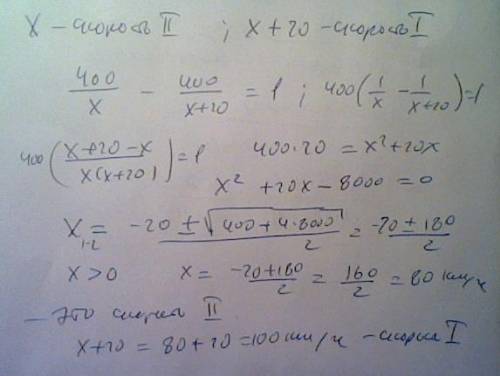 x – скорость II ; x + 20 – скорость I
400/x – 400/(x+20) = 1 ; 400(1/x – 1/(x+20)) = 1
400((x+20–x)/(x(x+20))) = 1 400·20 = x² + 20x
x² + 20x – 8000 = 0
x₁₋₂ = (–20 ± √(400 + 4·8000))/2 = (–20 ± 180)/2
x > 0 x = (–20+180)/2 = 160/2 = 80 км/ч
– это скорость II
x + 20 = 80 + 20 = 100 км/ч – скорость I